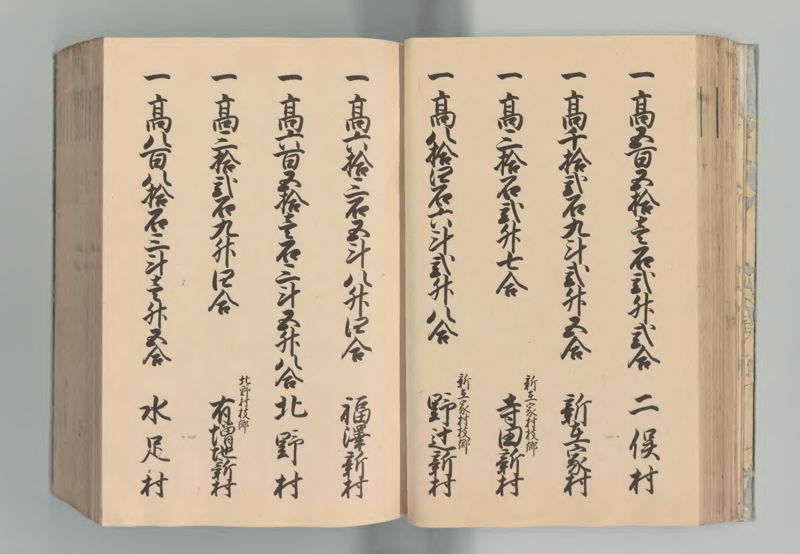 一 高五百五拾壱石弐升弐合 二俣村
一 高千拾弐石九斗弐升五合 新在家村
新在家村枝郷
一 高三拾石弐升七合 寺田新村
新在家村枝郷
一 高八拾四石六斗弐升八合 野辻新村
一 高六拾三石五斗八升四合 福澤新村
一 高六百五拾壱石三斗五升八合 北野村
北野村枝郷
一 高三拾弐石九升四合 有増地新村
一 高八百八拾石三斗壱升五合 水足村